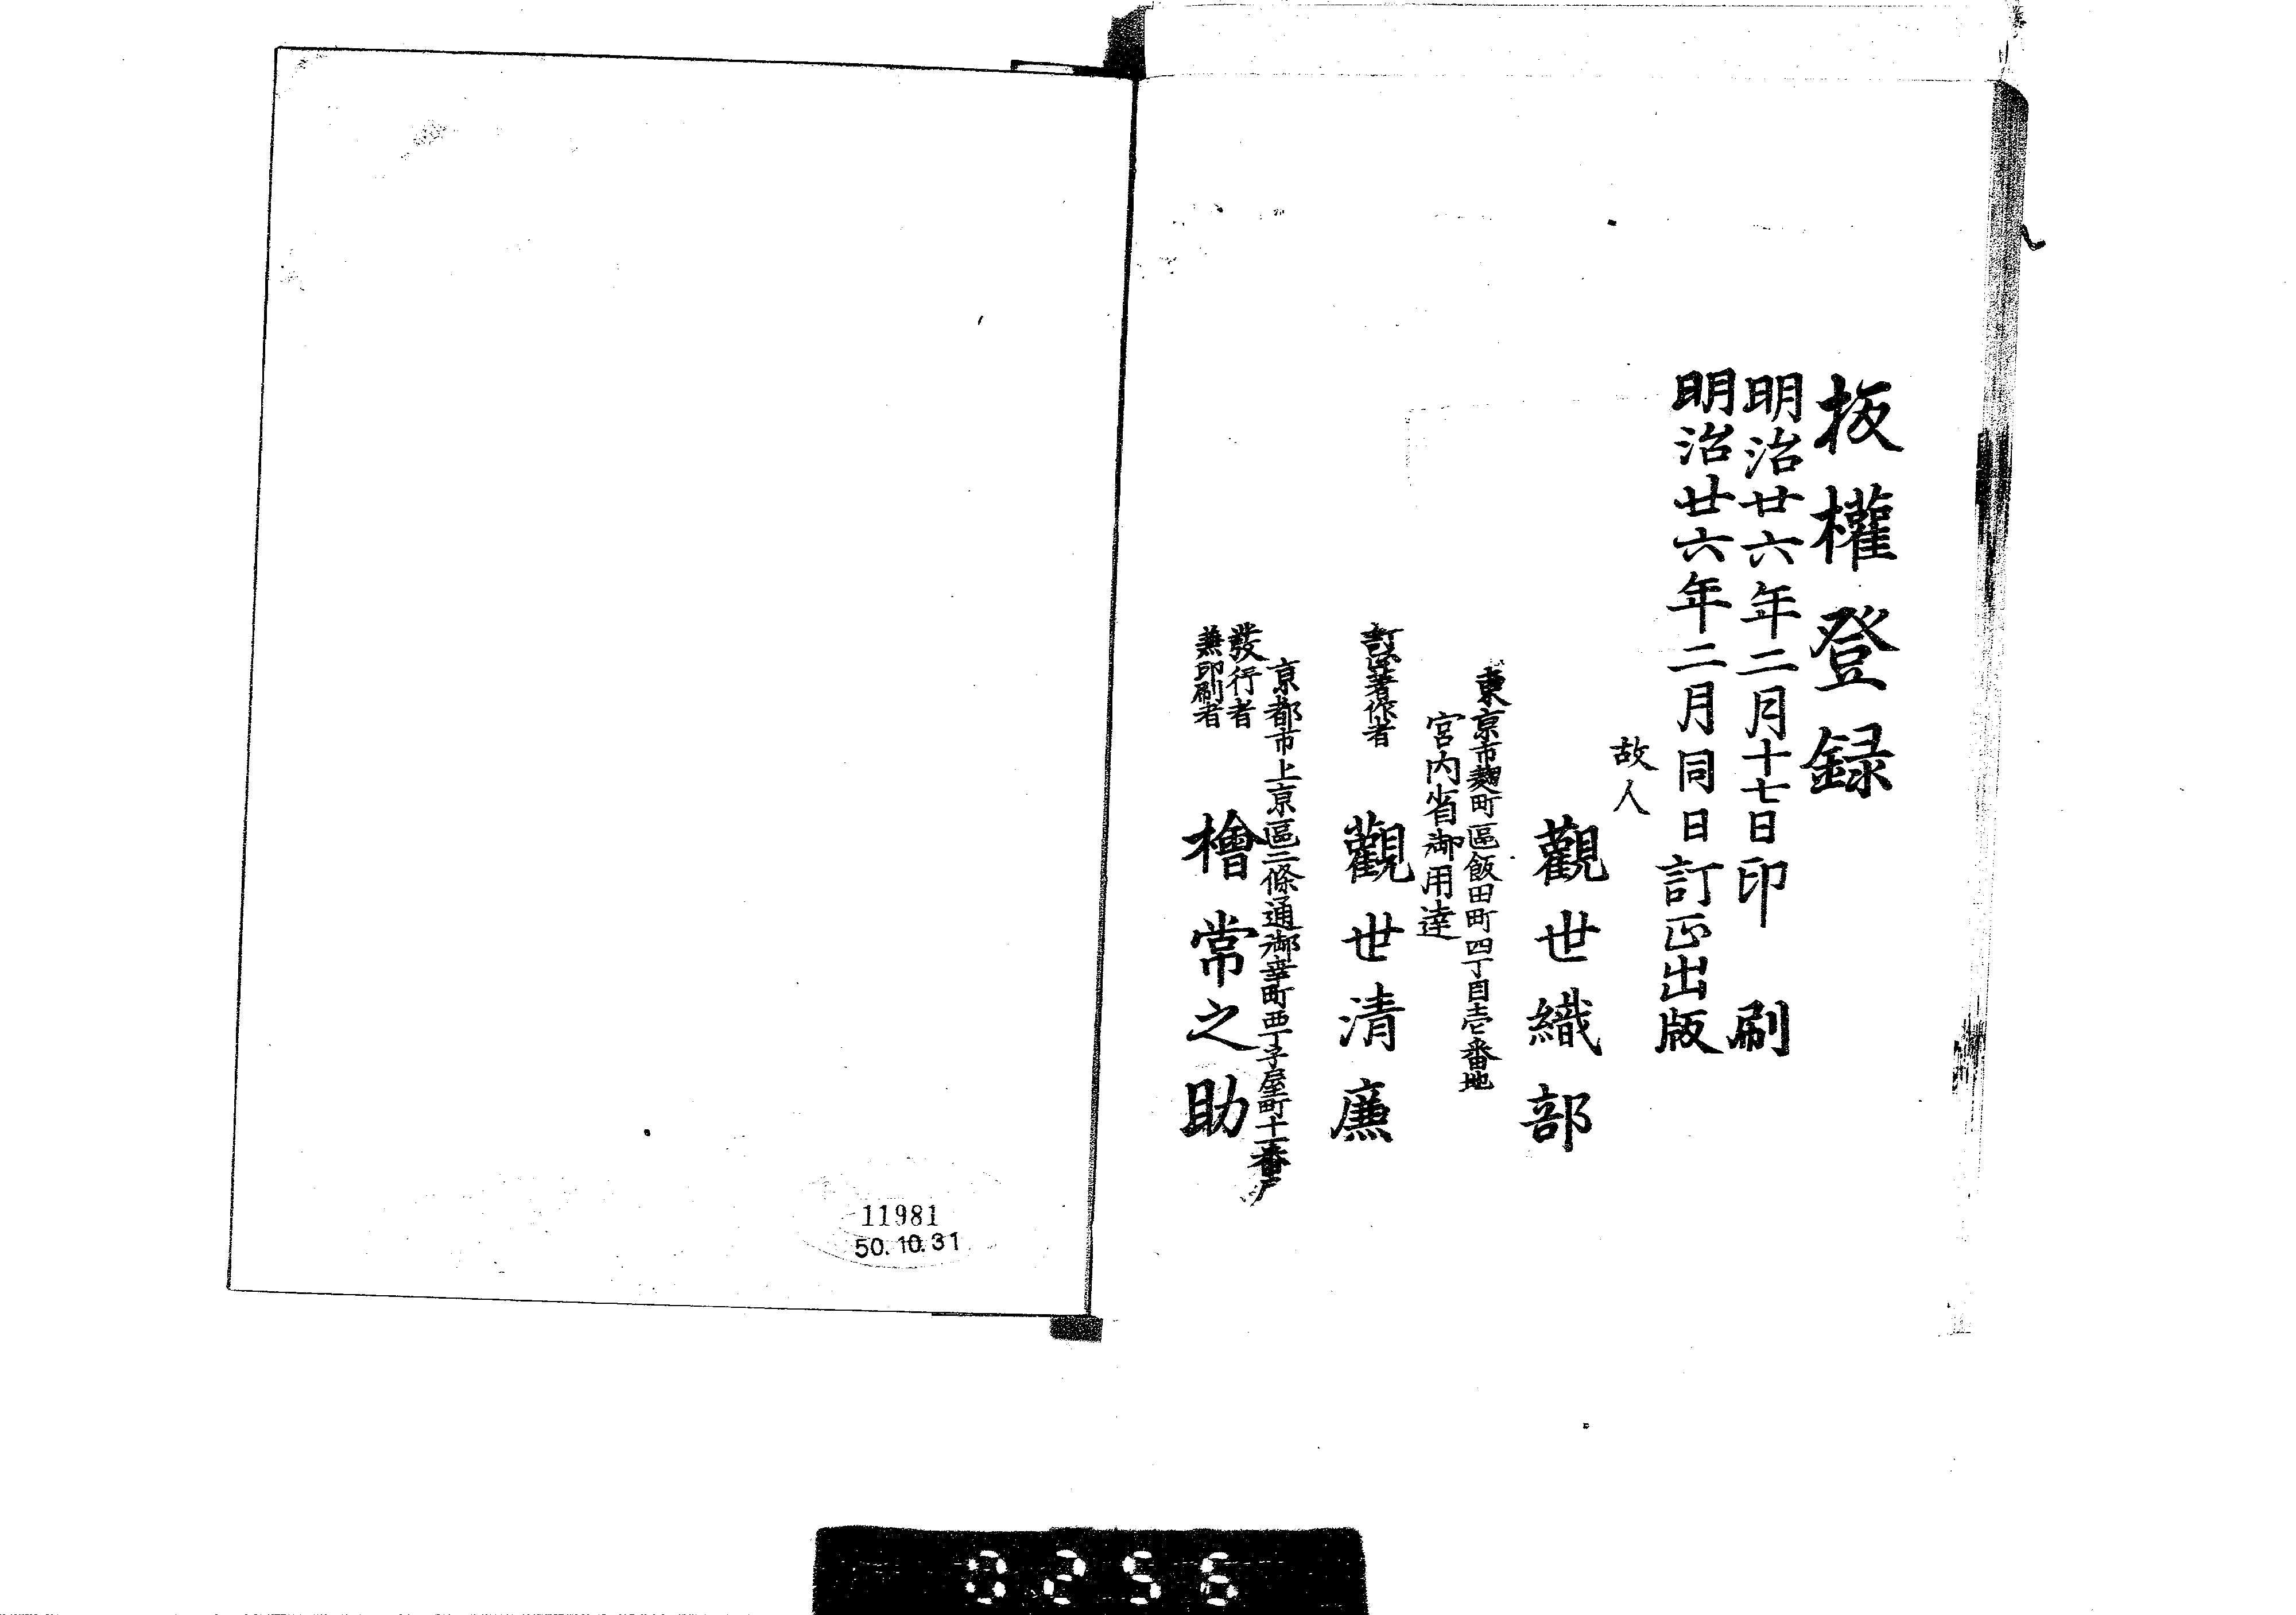 板權登録
明治廿六年二月十七日印刷
明治廿六年二月同日訂正出版
故人
觀世織部
東京市麹町區飯田町四丁目壱番地
宮内省御用達
訂正著作者
觀世清廉
京都市上京區二條通御幸町西丁子屋町十一番戸
發行者
兼印刷者
檜常之助
11981
50.10.31